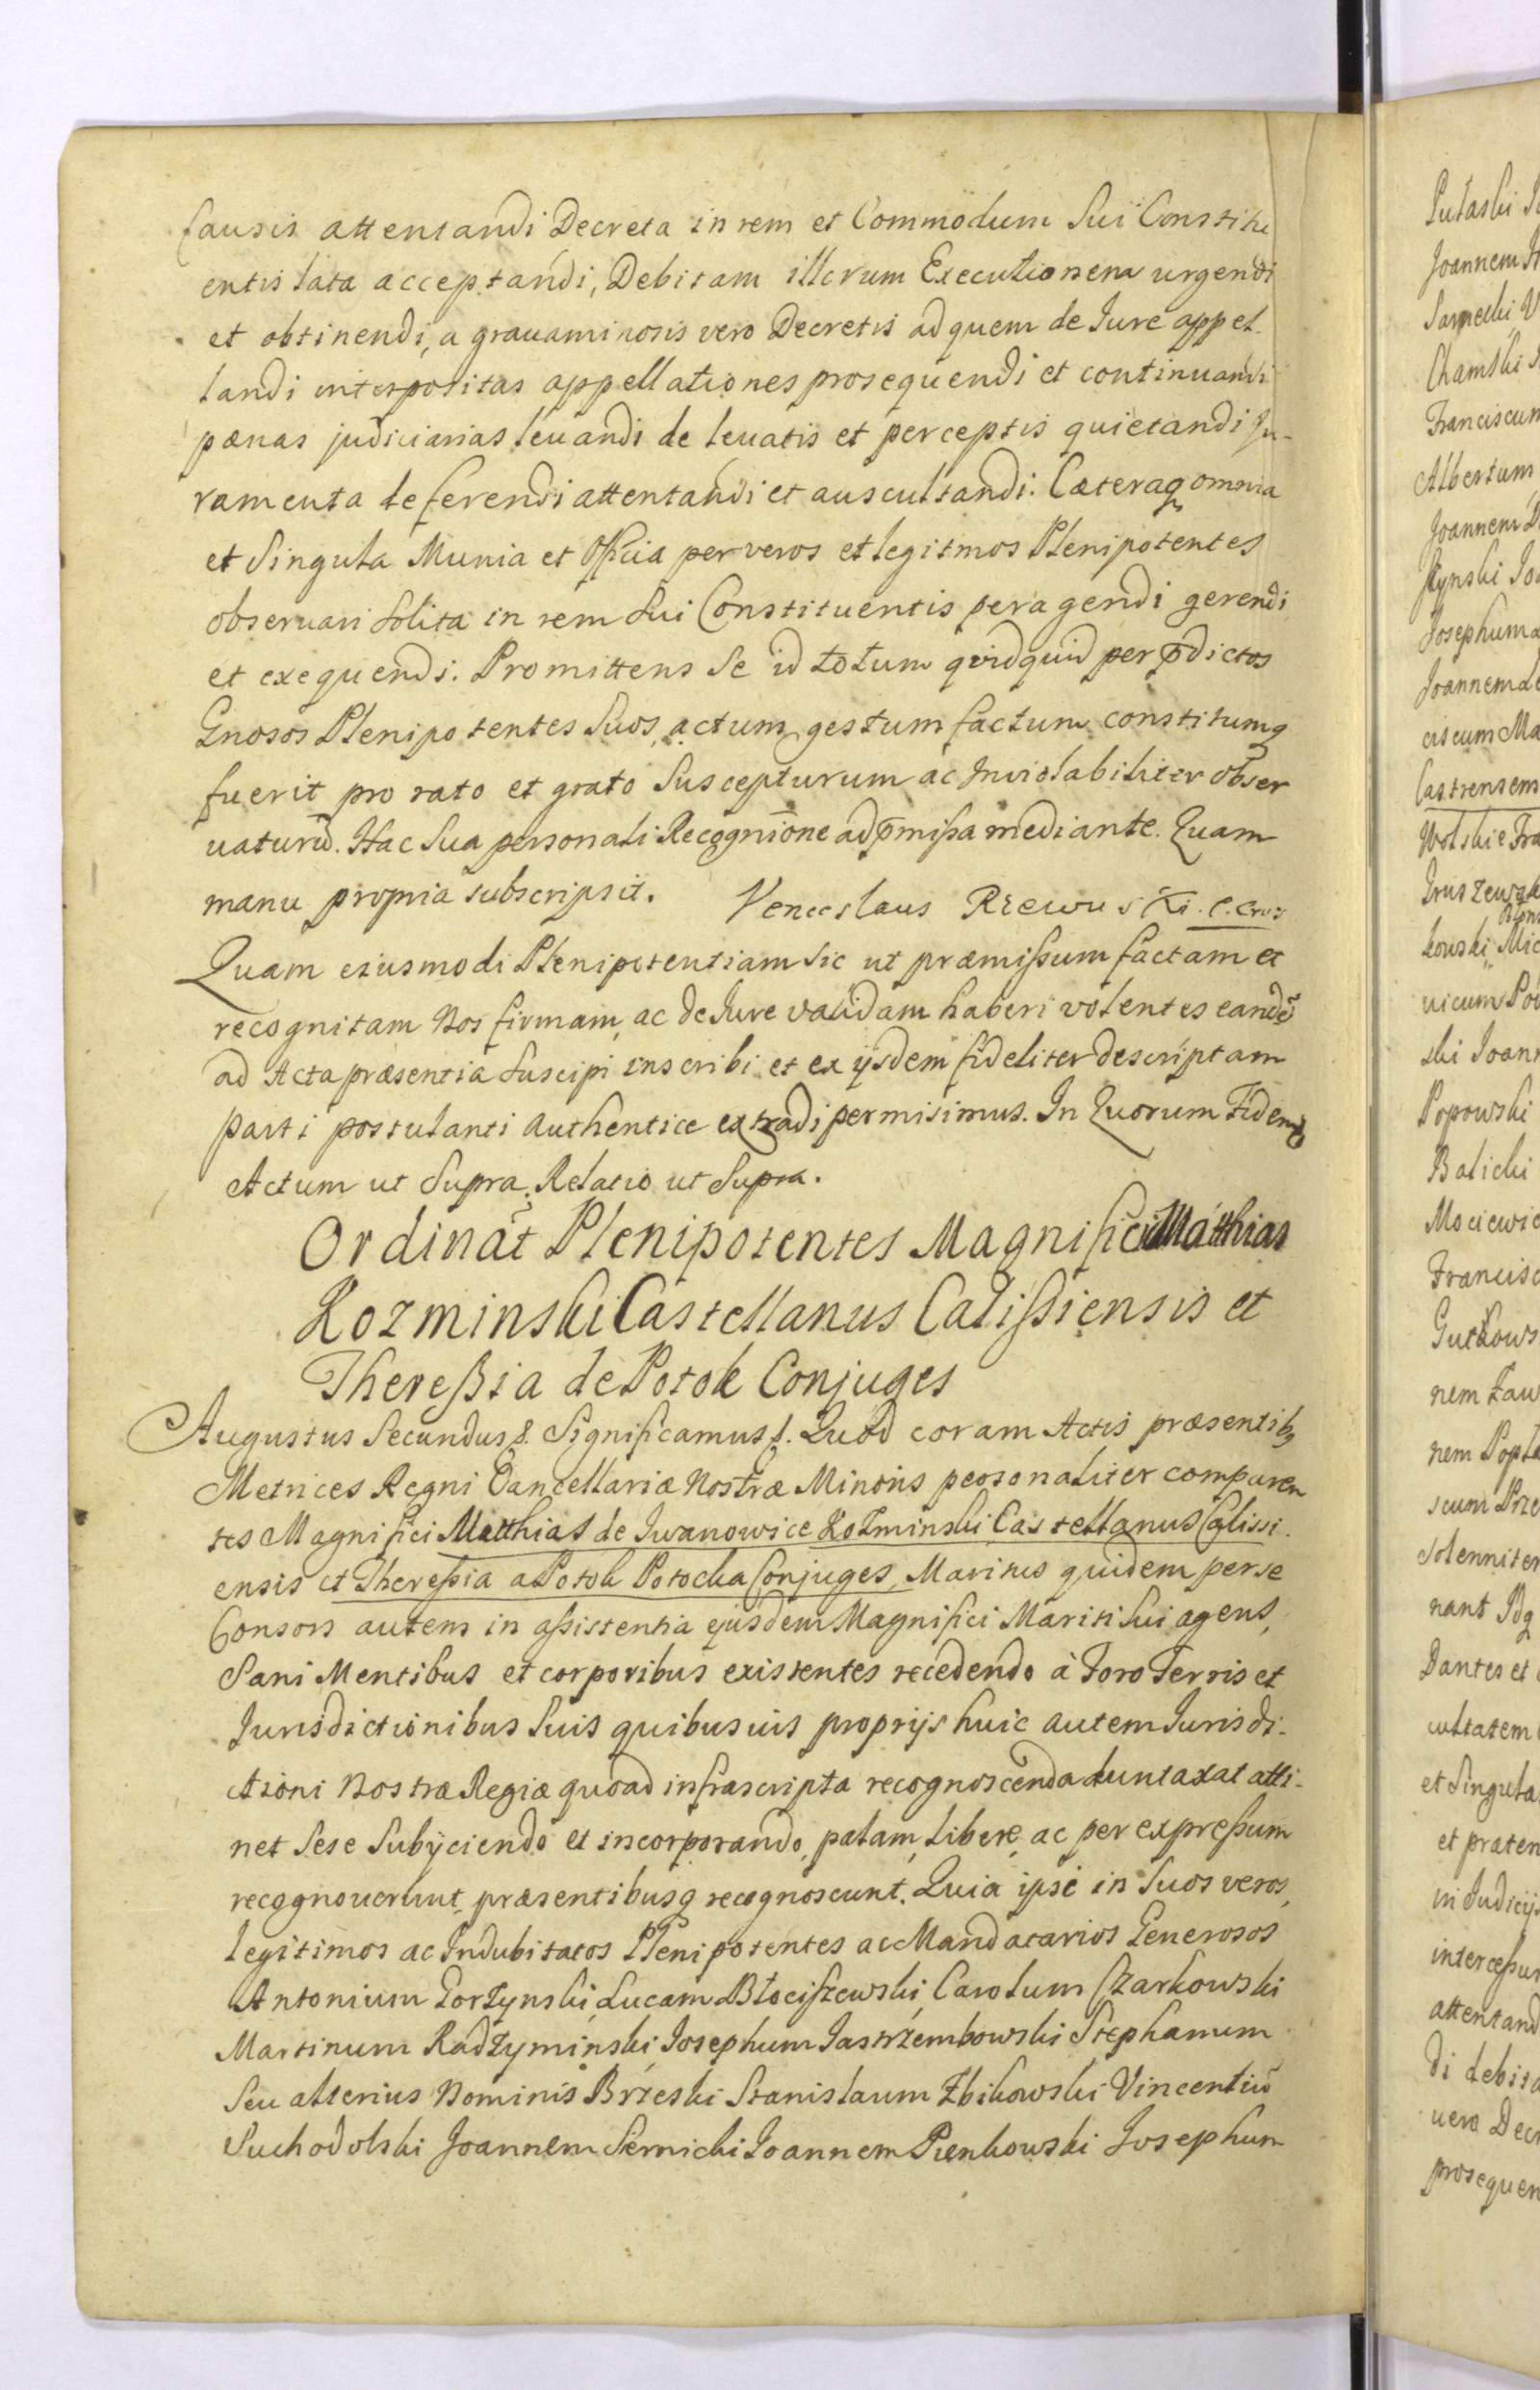 causis attentandi Decreta in rem et Commodum Sui Constitu
entis lata acceptandi, Debitam illorum Executionem urgendi
et obtinendi, a grauaminosis vero Decretis ad quem de Iure appel-
landi interpositas appellationes prosequendi et continuandi
pænas judiciarias leuandi de leuatis et perceptis quietandi Ju-
ramenta deferendi attentandi et auscultandi. Cæteraq omnia
et Singula Munia et Officia per veros et legitmos Plenipotentes
obseruari Solita in rem Sui Constituentis peragendi gerendi
et exequendi. Promittens Se id totum quidquid per p̄dictos
Gnosos Plenipotentes Suos, actum, gestum factum constitumq
fuerit pro rato et grato Suscepturum ac Inviolabiliter obser
uaturū. Hac Sua personali Recognīone ad p̄missa mediante. Quam
manu propria subscripsit. Venceslaus Rzewuski. C. Cros
Quam eiusmodi Plenipotentiam Sic ut præmissum factam et
recognitam Nos firmam, ac de Iure validam haberi volentes eandē
ad Acta præsentia Suscipi inscribi et ex ijsdem fideliter descriptam
parti postulanti Authentice extradi permisimus. In Quorum Fidem
Actum ut Supra. Relatio ut Supra.
Ordinat Plenipotentes Magnifici Matthias
Kozminski Castellanus Calissiensis et
Theressia de Potok Conjuges
Augustus Secundus &. Significamus &. Quod coram Actis præsentibq
Metrices Regni Cancellariæ Nostræ Minoris personaliter comparen
tes Magnifici Matthias de Iwanowice Kozminski Castellanus Calissi.
ensis et Theressia a Potok Potocka Conjuges, Maritus quidem per se
Consors autem in assistentia ejusdem Magnifici Mariti Sui agens,
Sani Mentibus et corporibus existentes recedendo à Foro Terris et
Jurisdictionibus Suis quibusuis proprijs huic autem Jurisdi-
ctioni Nostræ Regiæ quoad infrascripta recognoscenda duntaxat atti-
net Sese Subijciendo et incorporando, palam, libere, ac per expressum
recognouerunt præsentibusq recognoscunt. Quia ipsi in Suos veros,
legitimos ac Indubitatos Plenipotentes ac Mandatarios Generosos
Antonium Gorzynski, Lucam Błociszewski, Carolum Czarkowski
Martinum Radzyminski, Josephum Jastrzembowski Stephanum
Seu alterius Nominis Brzeski Stanislaum Zbikowski Vincentiū
Suchodolski Joannem Sernicki Joannem Pienkowski Josephum
Pułaski
Joannem
Chamski
Franciscum
Albertum
Joannem
Josephum
Joannem
ciscum Ma
Castrensem
Wolski e Fra
kowski, Mic
uicum
ski Joann
Popowski
Balicki
Mociewic
Francisc
nem Zaw
nem
scum Prze
solenniter
nant Idq
Dantes et
cultatem
et Singula
et præten
in Judicijs
intercessur
attentand
di debita
uero Decr
prosequen